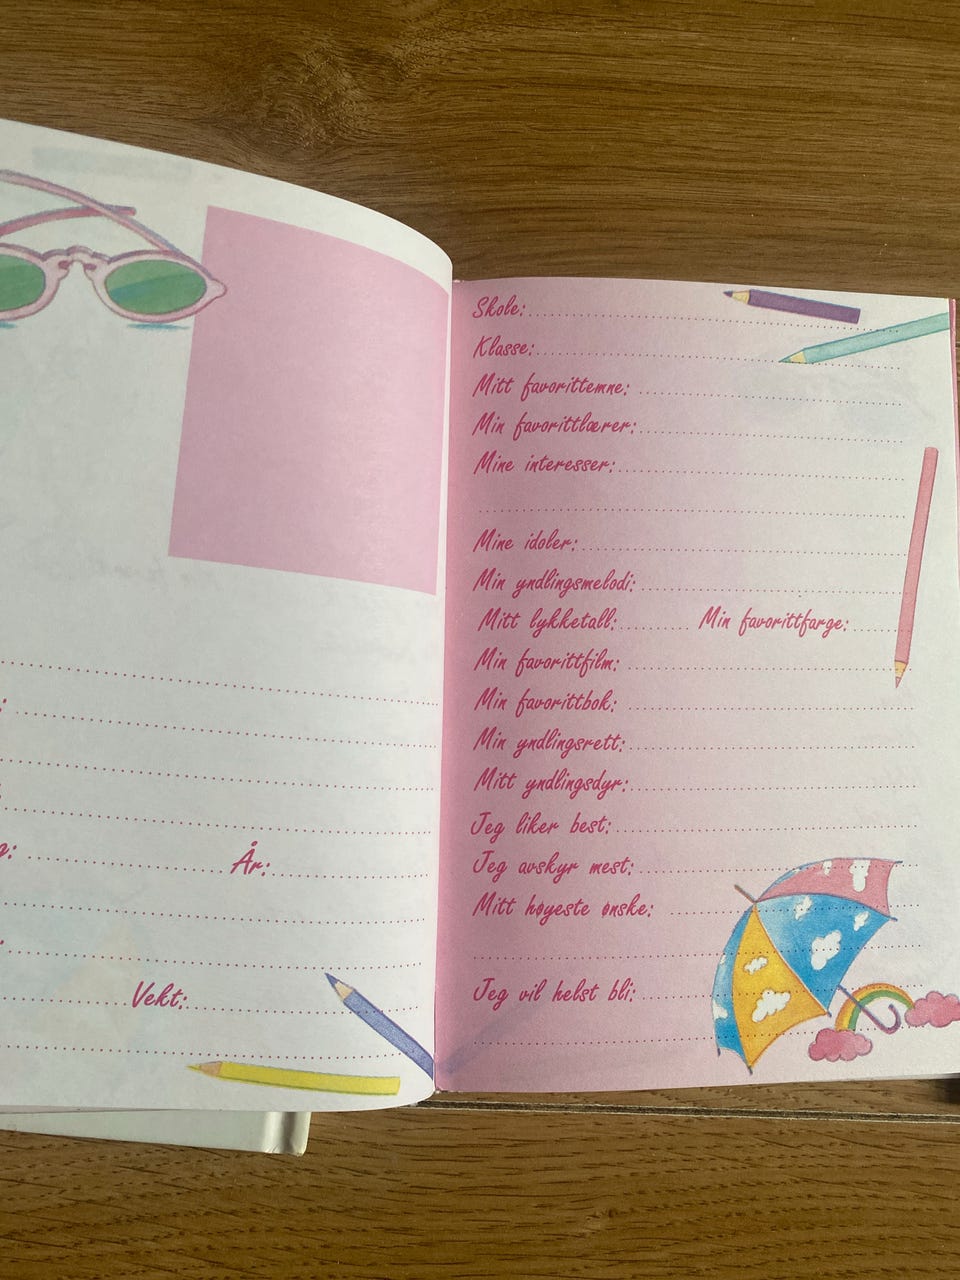 År:
Vekt:
Skole:
Klasse:
Mitt favorittemne:
Min favorittlærer:
Mine interesser:
Mine idoler:
Min yndlingsmelodi:
Mitt lykketall: Min favorittfarge:
Min favorittfilm:
Min favorittbok:
Min yndlingsrett:
Mitt yndlingsdyr:
Jeg liker best:
Jeg avskyr mest:
Mitt høyeste ønske:
Jeg vil helst bli: